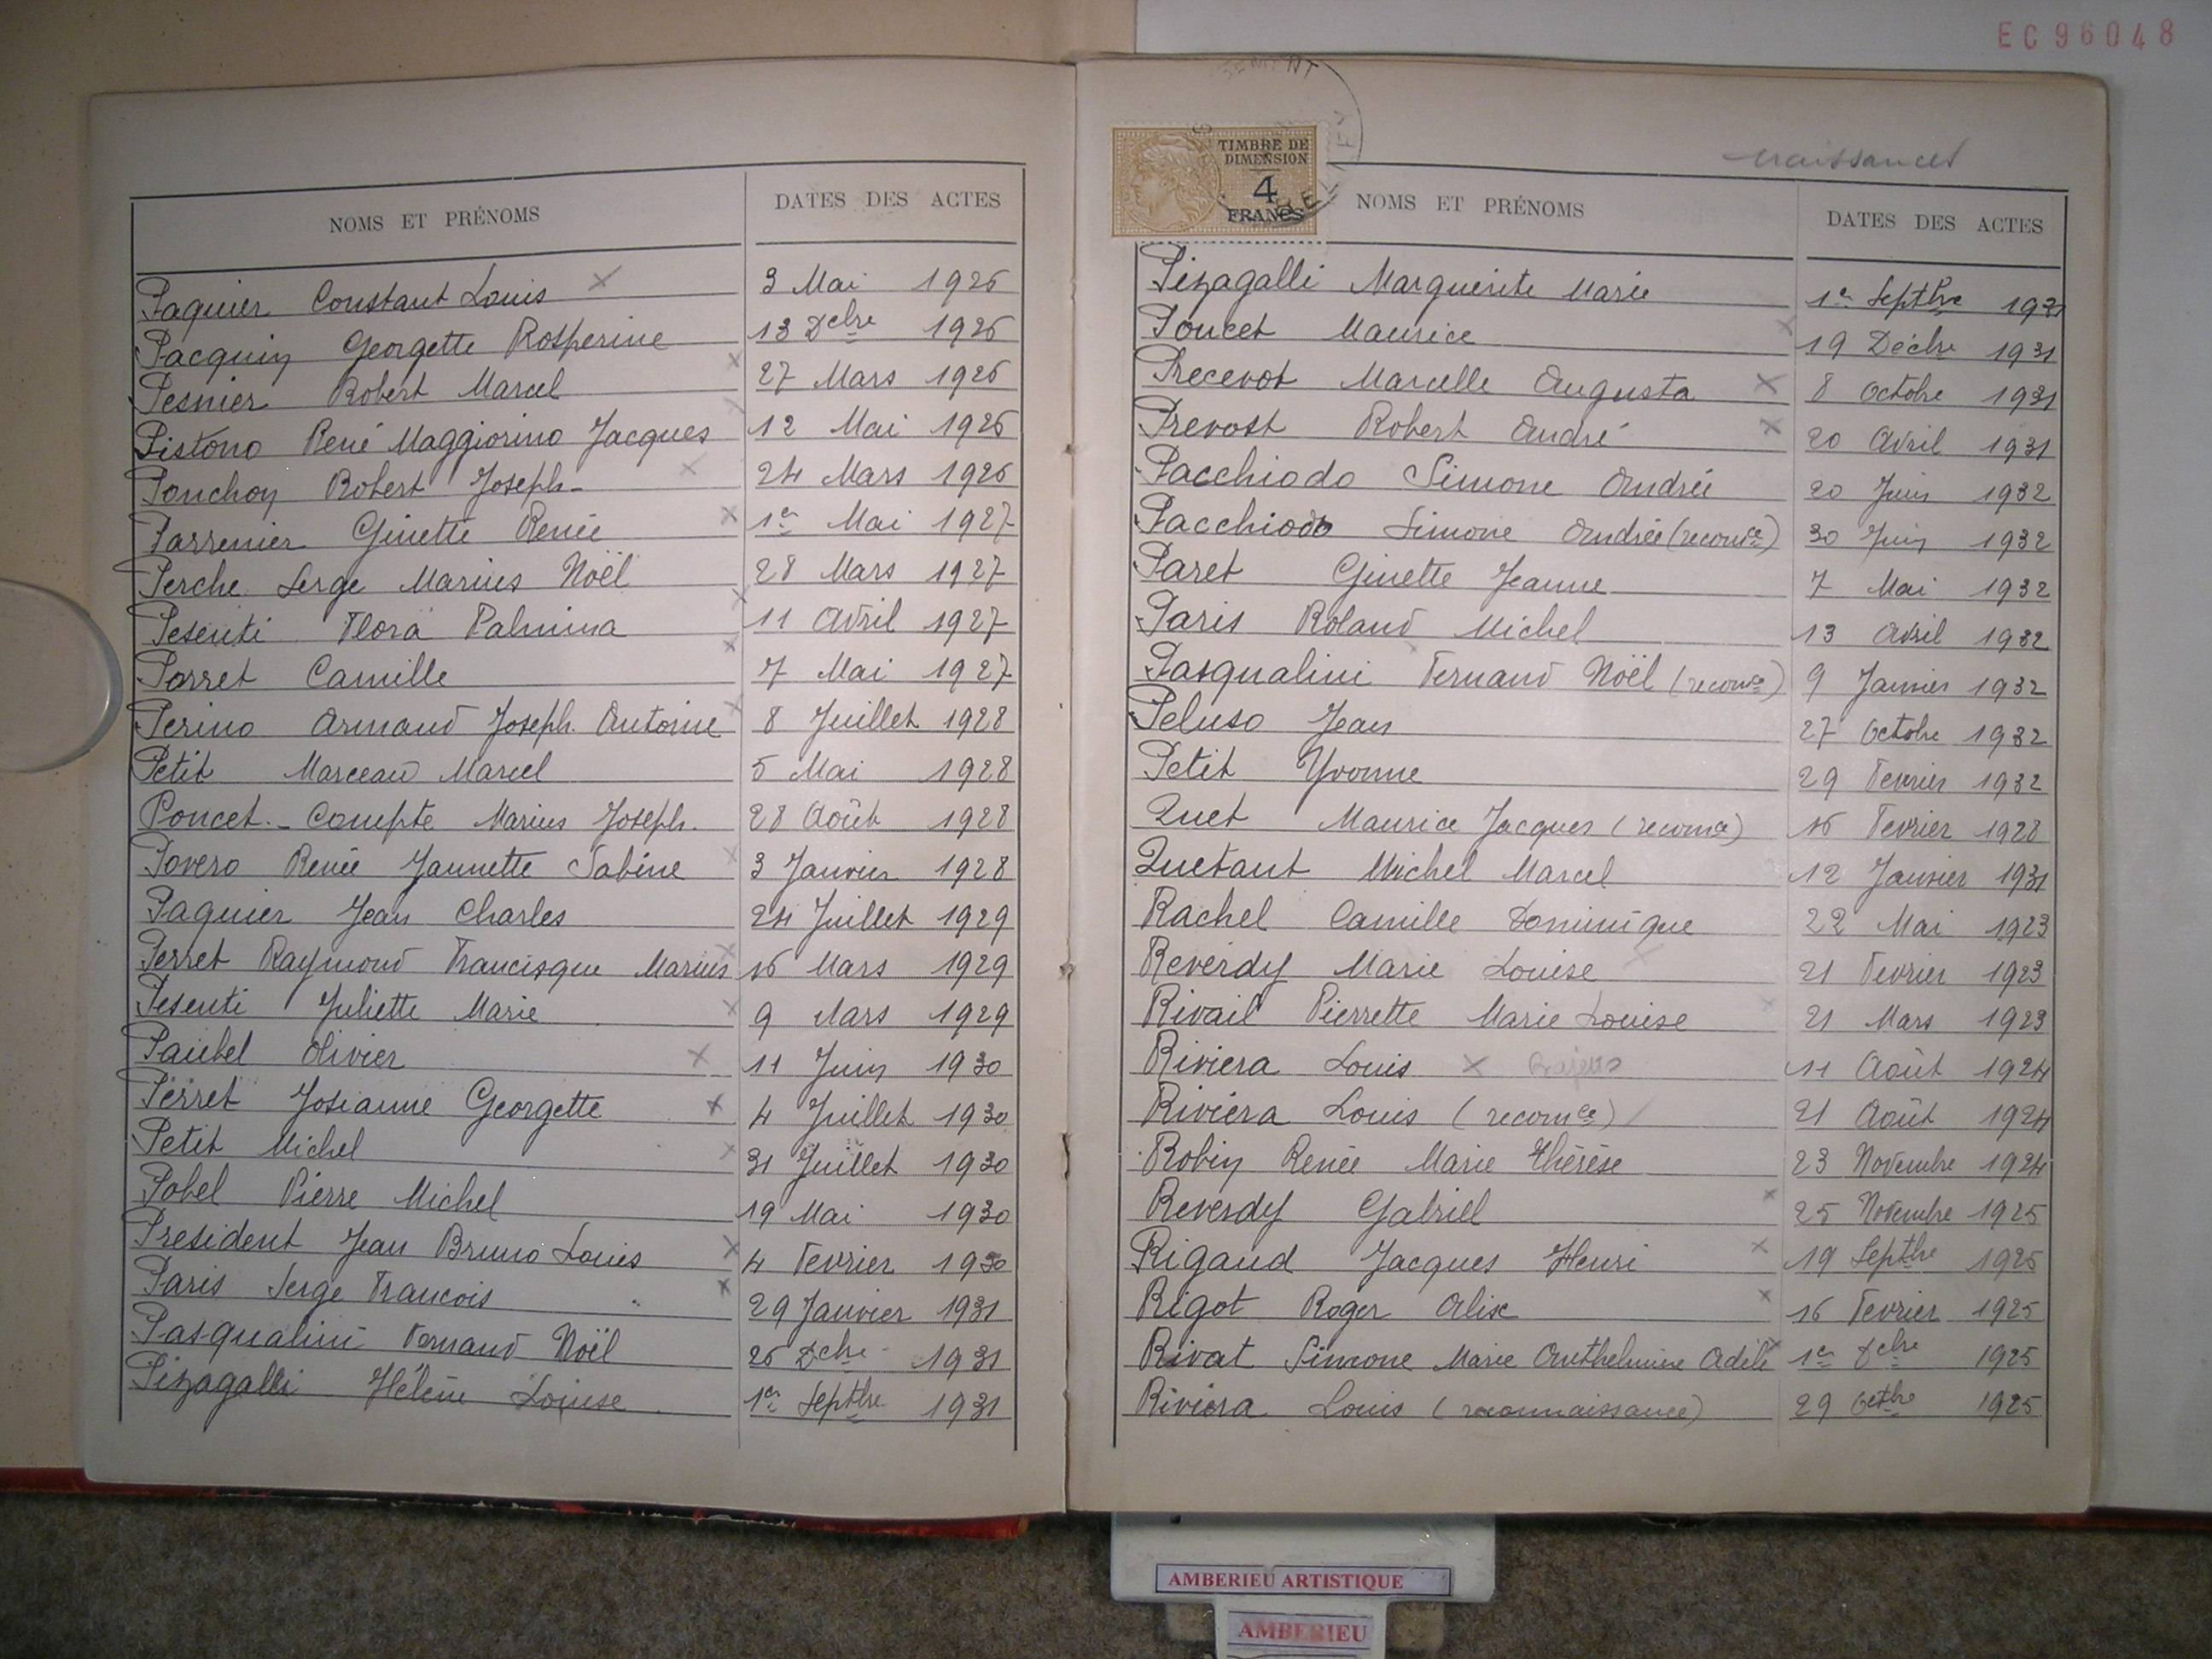 EC96048
naissances
TIMBRE DE
DIMENSION
4
FRANCS
NOMS ET PRÉNOMS DATES DES ACTES
Paquier Constant Louis x 3 Mai 1926
Pacquin Georgette Rosperine 13 Dcbre 1926
Pesnier Robert Marcel x 27 Mars 1926
Pistono René Maggiorino Jacques x 12 Mai 1926
Ponchon Robert Joseph x 24 Mars 1926
Parrenier Ginette Renée x 1er Mai 1927
Perche Serge Marius Noël 28 Mars 1927
Pesenti Flora Palmina x 11 Avril 1927
Porret Camille x 7 Mai 1927
Perino Armand Joseph Antoine x 8 Juillet 1928
Petit Marceau Marcel 5 Mai 1928
Poncet - Compte Marius Joseph. 28 Août 1928
Povero Renée Jannette Sabine x 3 Janvier 1928
Paquier Jean Charles 24 Juillet 1929
Perret Raymond Francisque Marius x 16 Mars 1929
Pesenti Juliette Marie x 9 Mars 1929
Paubel Olivier x 11 Juin 1930
Perret Josianne Georgette x 4 Juillet 1930
Petit Michel x 31 Juillet 1930
Pobel Pierre Michel 19 Mai 1930
President Jean Bruno Louis x 4 Fevrier 1930
Paris Serge Francois x 29 Janvier 1931
Pasqualini Fernand Noël 26 Dcbre 1931
Pizagalli Hélène Louise 1er Septbre 1931
NOMS ET PRÉNOMS DATES DES ACTES
Pizagalli Marguerite Marie 1er Septbre 1931
Poncet Maurice x 19 Décbre 1931
Precevot Marcelle Augusta x 8 Octobre 1931
Prevost Robert André x 20 Avril 1931
Pacchiodo Simone Andrée 20 Juin 1932
Pacchiodo Simone Andrée (reconce) 30 Juin 1932
Paret Ginette Jeanne 7 Mai 1932
Paris Roland Michel 13 Avril 1932
Pasqualini Fernand Noël (reconce) 9 Janvier 1932
Peluso Jean 27 Octobre 1932
Petit Yvonne 29 Fevrier 1932
Quet Maurice Jacques (reconce) 16 Fevrier 1928
Quetant Michel Marcel 12 Janvier 1931
Rachel Camille Dominique 22 Mai 1923
Reverdy Marie Louise x 21 Fevrier 1923
Rivail Pierrette Marie Louise 21 Mars 1923
Riviera Louis x 11 Août 1924
Riviéra Louis (reconce) 21 Août 1924
Robin Renée Marie Thérèse 23 Novembre 1924
Reverdy Gabriel x 25 Novembre 1925
Rigaud Jacques Henri x 19 Septbre 1925
Rigot Roger Alix x 16 Fevrier 1925
Rivat Simone Marie Anthelmine Adèle x 1er Dcbre 1925
Riviera Louis (reconnaissance) 29 Octbre 1925
AMBERIEU ARTISTIQUE
AMBERIEU